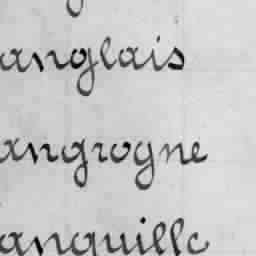 anglais
angrogne
anguille